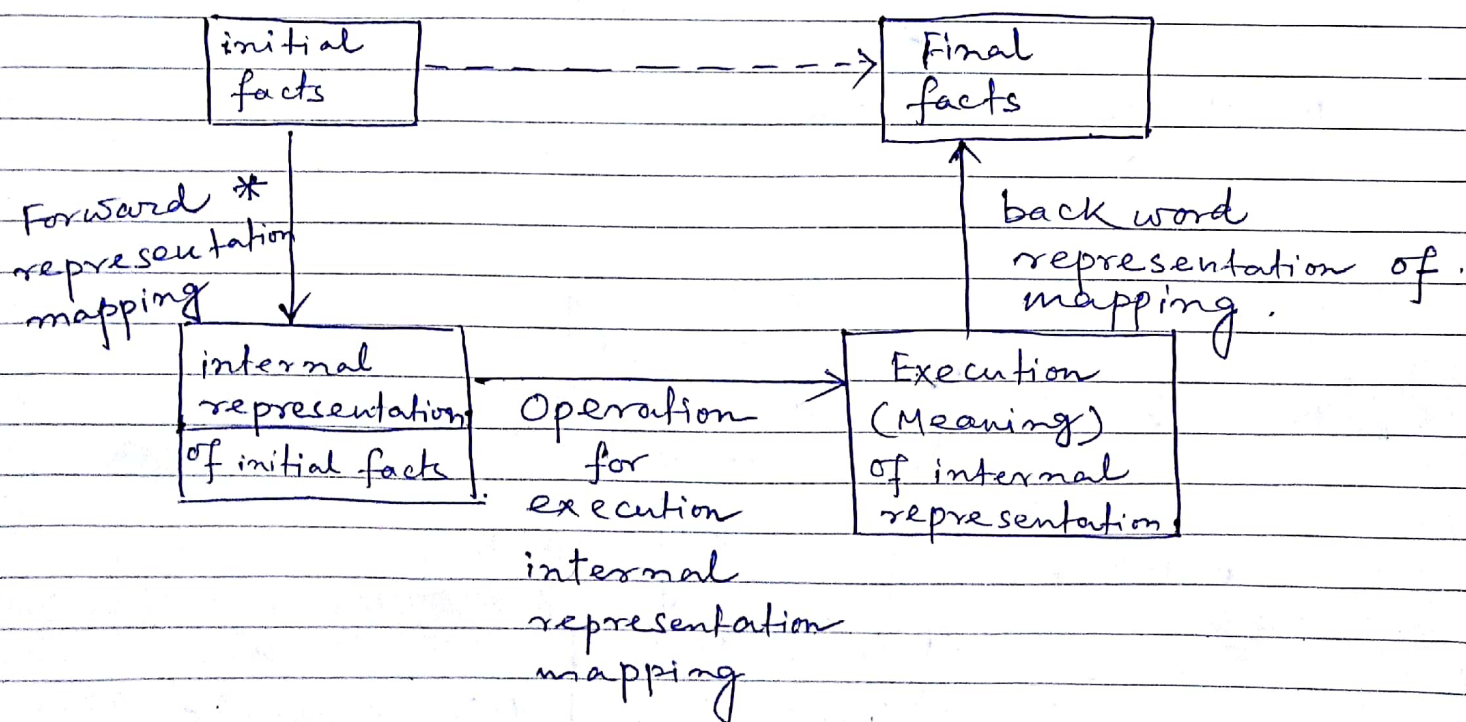 initial
facts
Final
facts
Forward *
representation
mapping
back word
representation of.
mapping.
internal
representation
of initial facts
Operation
for
execution
internal
representation
mapping
Execution
(Meaning)
of internal
representation